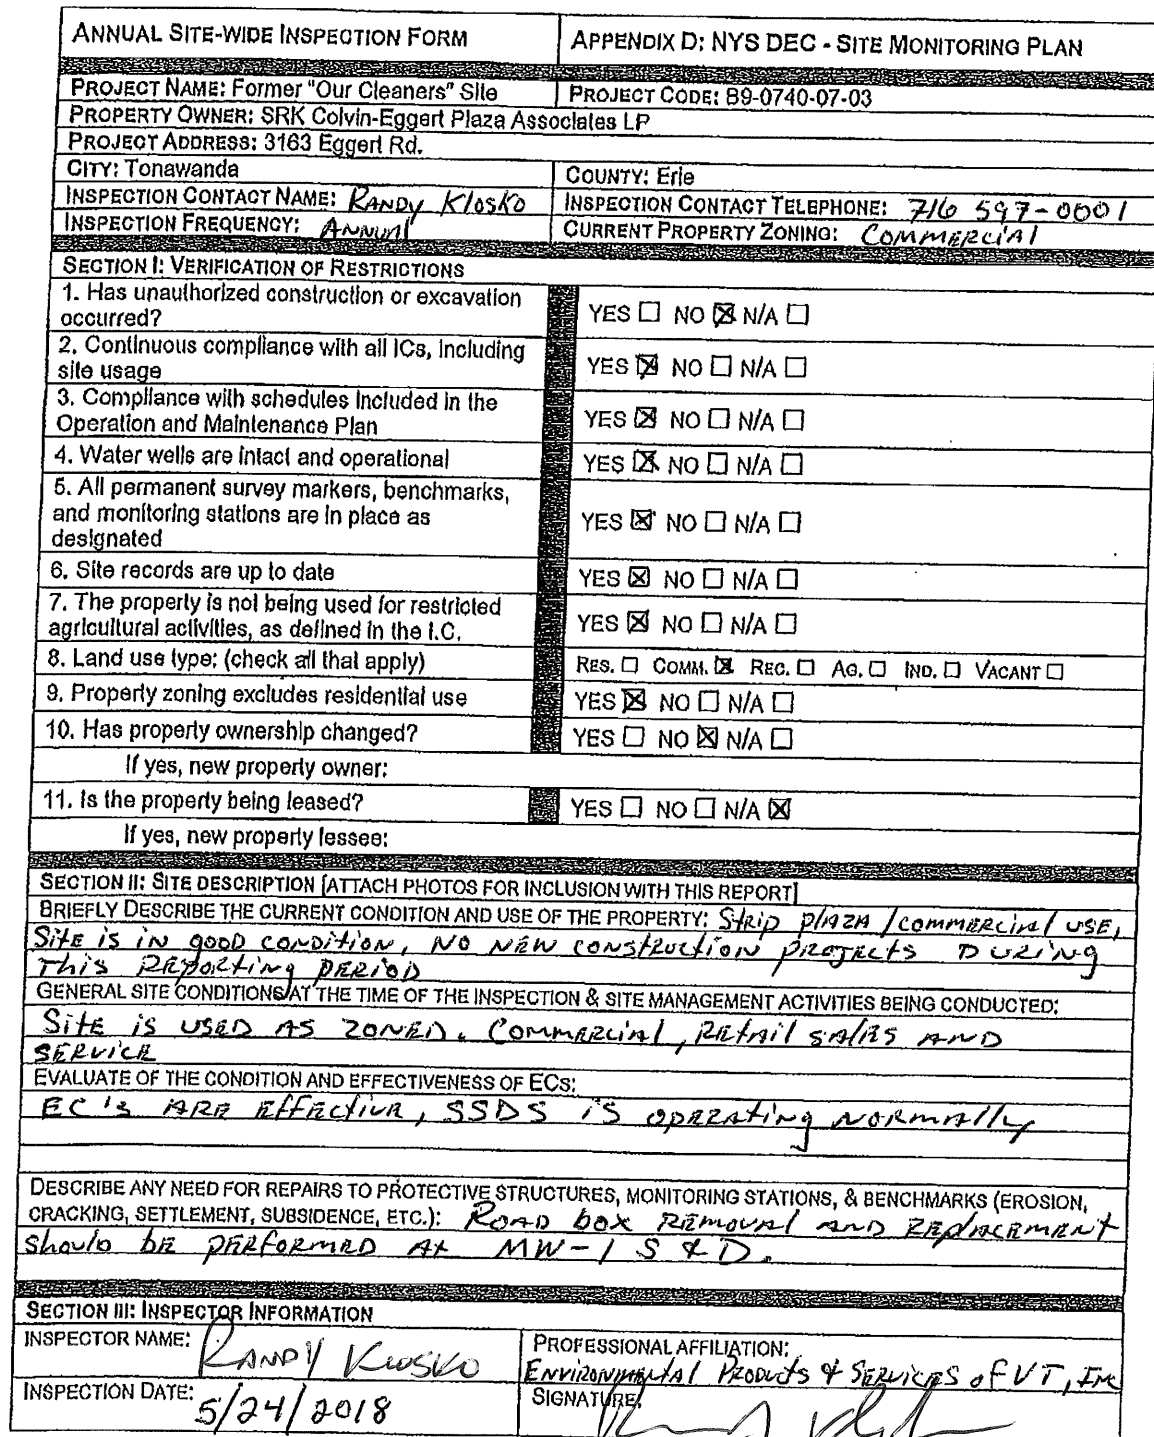 ANNUAL SITE-WIDE INSPECTION FORM
APPENDIX D: NYS DEC - SITE MONITORING PLAN
PROJECT NAME: Former "Our Cleaners" Site
PROJECT CODE: B9-0740-07-03
PROPERTY OWNER: SRK Colvin-Eggert Plaza Associates LP
PROJECT ADDRESS: 3163 Eggert Rd.
CITY: Tonawanda
COUNTY: Erie
INSPECTION CONTACT NAME: RANDY KLOSKO
INSPECTION CONTACT TELEPHONE: 716 597-0001
INSPECTION FREQUENCY: ANNUAL
CURRENT PROPERTY ZONING: COMMERCIAL
SECTION I: VERIFICATION OF RESTRICTIONS
1. Has unauthorized construction or excavation
occurred?
YES ☐ NO ☒ N/A ☐
2. Continuous compliance with all ICs, including
site usage
YES ☒ NO ☐ N/A ☐
3. Compliance with schedules included in the
Operation and Maintenance Plan
YES ☒ NO ☐ N/A ☐
4. Water wells are intact and operational
YES ☒ NO ☐ N/A ☐
5. All permanent survey markers, benchmarks,
and monitoring stations are in place as
designated
YES ☒ NO ☐ N/A ☐
6. Site records are up to date
YES ☒ NO ☐ N/A ☐
7. The property is not being used for restricted
agricultural activities, as defined in the I.C.
YES ☒ NO ☐ N/A ☐
8. Land use type: (check all that apply)
RES. ☐ COMM. ☒ REC. ☐ AG. ☐ IND. ☐ VACANT ☐
9. Property zoning excludes residential use
YES ☒ NO ☐ N/A ☐
10. Has property ownership changed?
YES ☐ NO ☒ N/A ☐
If yes, new property owner:
11. Is the property being leased?
YES ☐ NO ☐ N/A ☒
If yes, new property lessee:
SECTION II: SITE DESCRIPTION [ATTACH PHOTOS FOR INCLUSION WITH THIS REPORT]
BRIEFLY DESCRIBE THE CURRENT CONDITION AND USE OF THE PROPERTY: STRIP PLAZA / COMMERCIAL USE,
SITE IS IN GOOD CONDITION, NO NEW CONSTRUCTION PROJECTS DURING
THIS REPORTING PERIOD
GENERAL SITE CONDITIONS AT THE TIME OF THE INSPECTION & SITE MANAGEMENT ACTIVITIES BEING CONDUCTED:
SITE IS USED AS ZONED. COMMERCIAL, RETAIL SALES AND
SERVICE
EVALUATE OF THE CONDITION AND EFFECTIVENESS OF ECS:
EC's ARE EFFECTIVE, SSDS IS OPERATING NORMALLY
DESCRIBE ANY NEED FOR REPAIRS TO PROTECTIVE STRUCTURES, MONITORING STATIONS, & BENCHMARKS (EROSION,
CRACKING, SETTLEMENT, SUBSIDENCE, ETC.): ROAD BOX REMOVAL AND REPLACEMENT
SHOULD BE PERFORMED AT MW-1 S & D.
SECTION III: INSPECTOR INFORMATION
INSPECTOR NAME: RANDY KLOSKO
PROFESSIONAL AFFILIATION:
ENVIRONMENTAL PRODUCTS & SERVICES OF VT, INC
INSPECTION DATE: 5/24/2018
SIGNATURE: